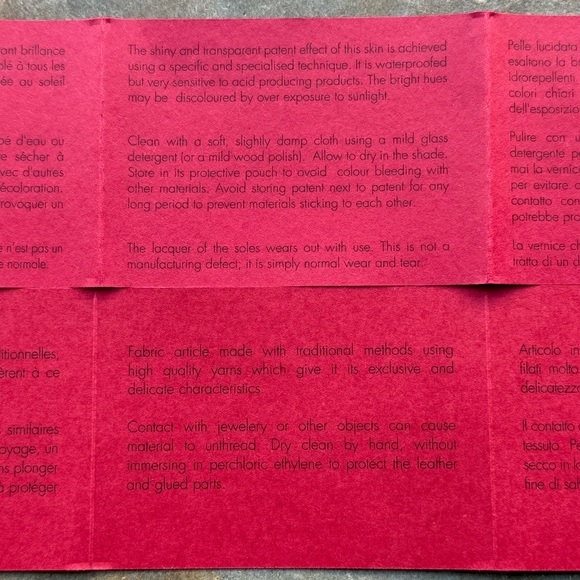 ant brillance
à tous les
ée au soleil
d'eau ou
sécher à
vec d'autres
écoloration.
rovoquer un
n'est pas un
normale.
The shiny and transparent patent effect of this skin is achieved
using a specific and specialised technique. It is waterproofed
but very sensitive to acid producing products. The bright hues
may be discoloured by over exposure to sunlight.
Clean with a soft, slightly damp cloth using a mild glass
detergent (or a mild wood polish). Allow to dry in the shade.
Store in its protective pouch to avoid colour bleeding with
other materials. Avoid storing patent next to patent for any
long period to prevent materials sticking to each other.
The lacquer of the soles wears out with use. This is not a
manufacturing defect, it is simply normal wear and tear.
Pelle lucidata
esaltano la b
idrorepellenti
colori chiari
dell'esposizio
Pulire con s
detergente p
mai la vernice
per evitare
contatto con
potrebbe pro
La vernice ch
tratta di un d
itionnelles,
èrent à ce
similaires
oyage, un
ns plonger
à protéger
Fabric article made with traditional methods using
high quality yarns which give it its exclusive and
delicate characteristics.
Contact with jewelery or other objects can cause
material to unthread. Dry clean by hand, without
immersing in perchloric ethylene to protect the leather
and glued parts.
Articolo in
filati molto
delicatezz
Il contatto
tessuto. Pe
secco in lo
fine di sal